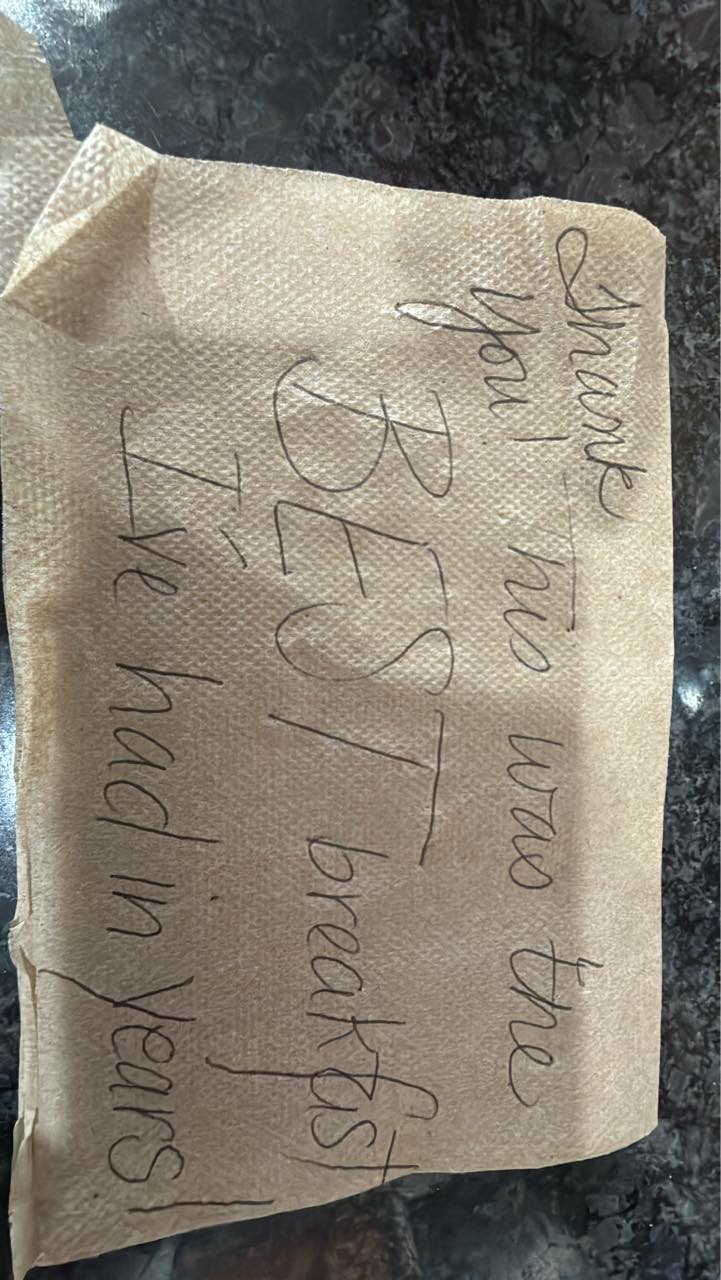 Thank
you! This was the
BEST breakfast
I've had in years!